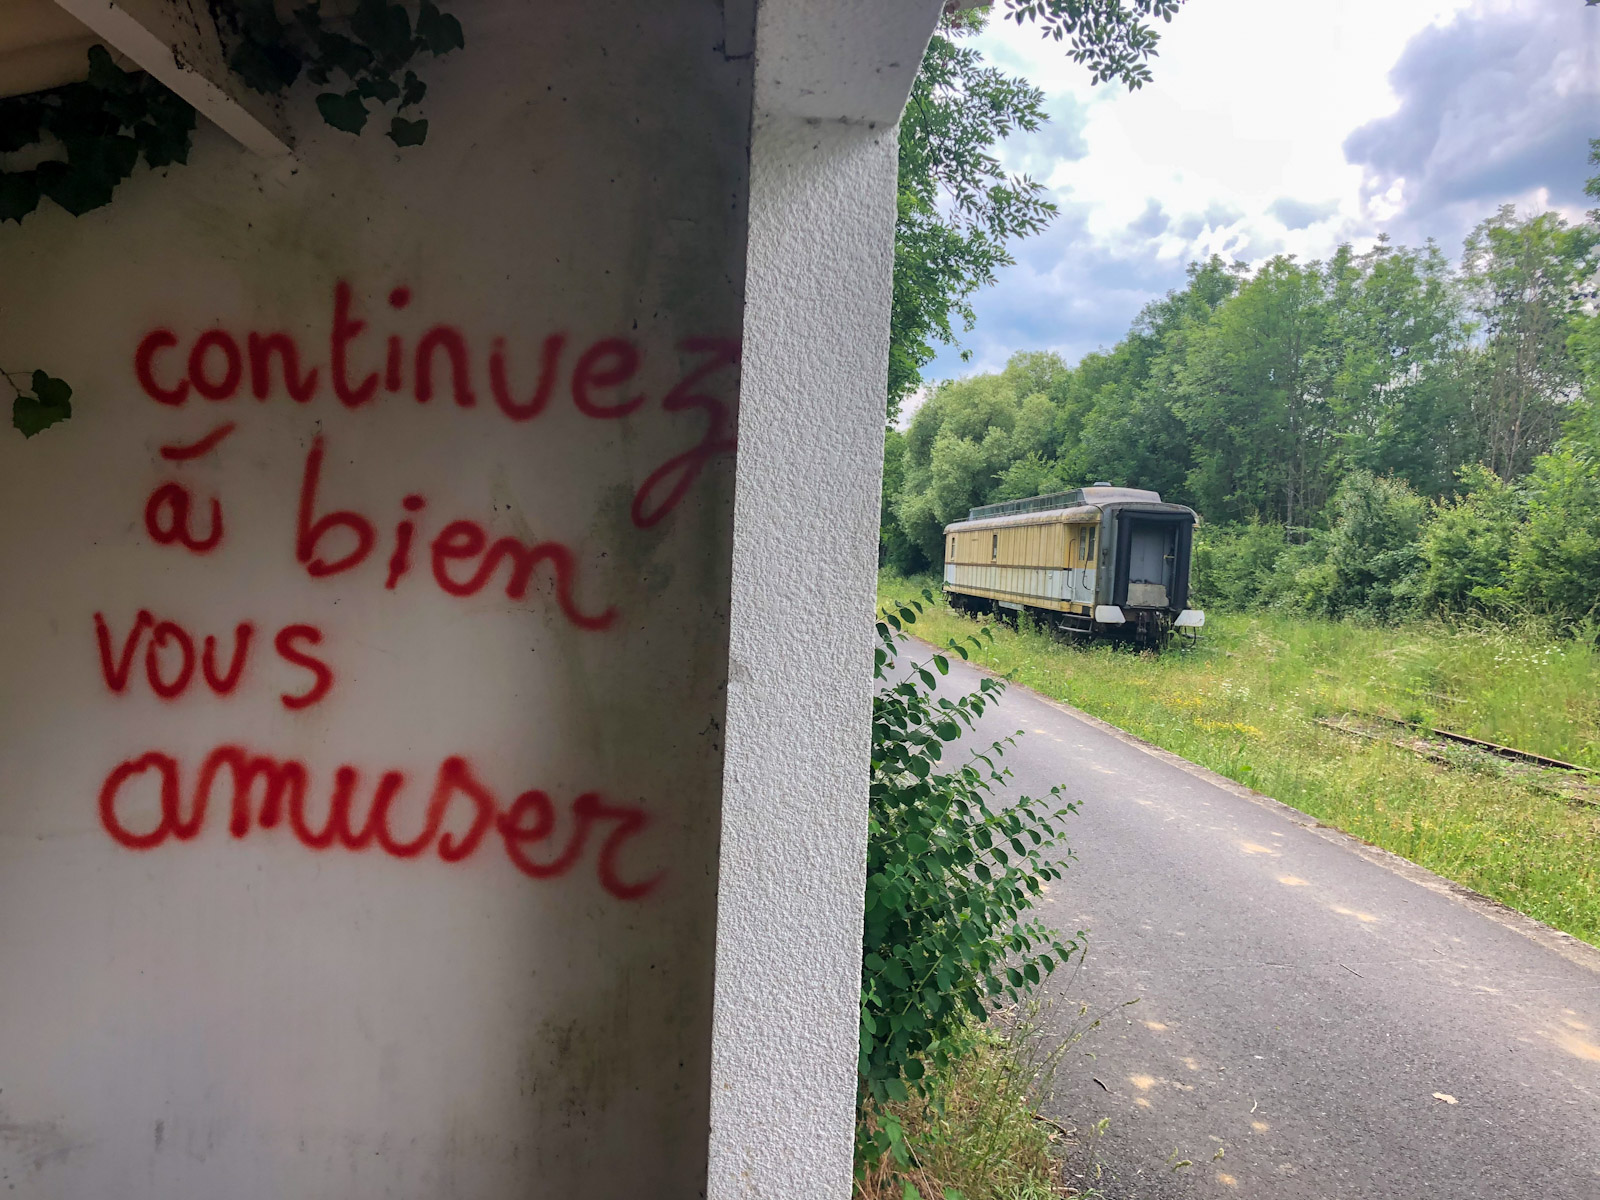 continuez
à bien
vous
amuser